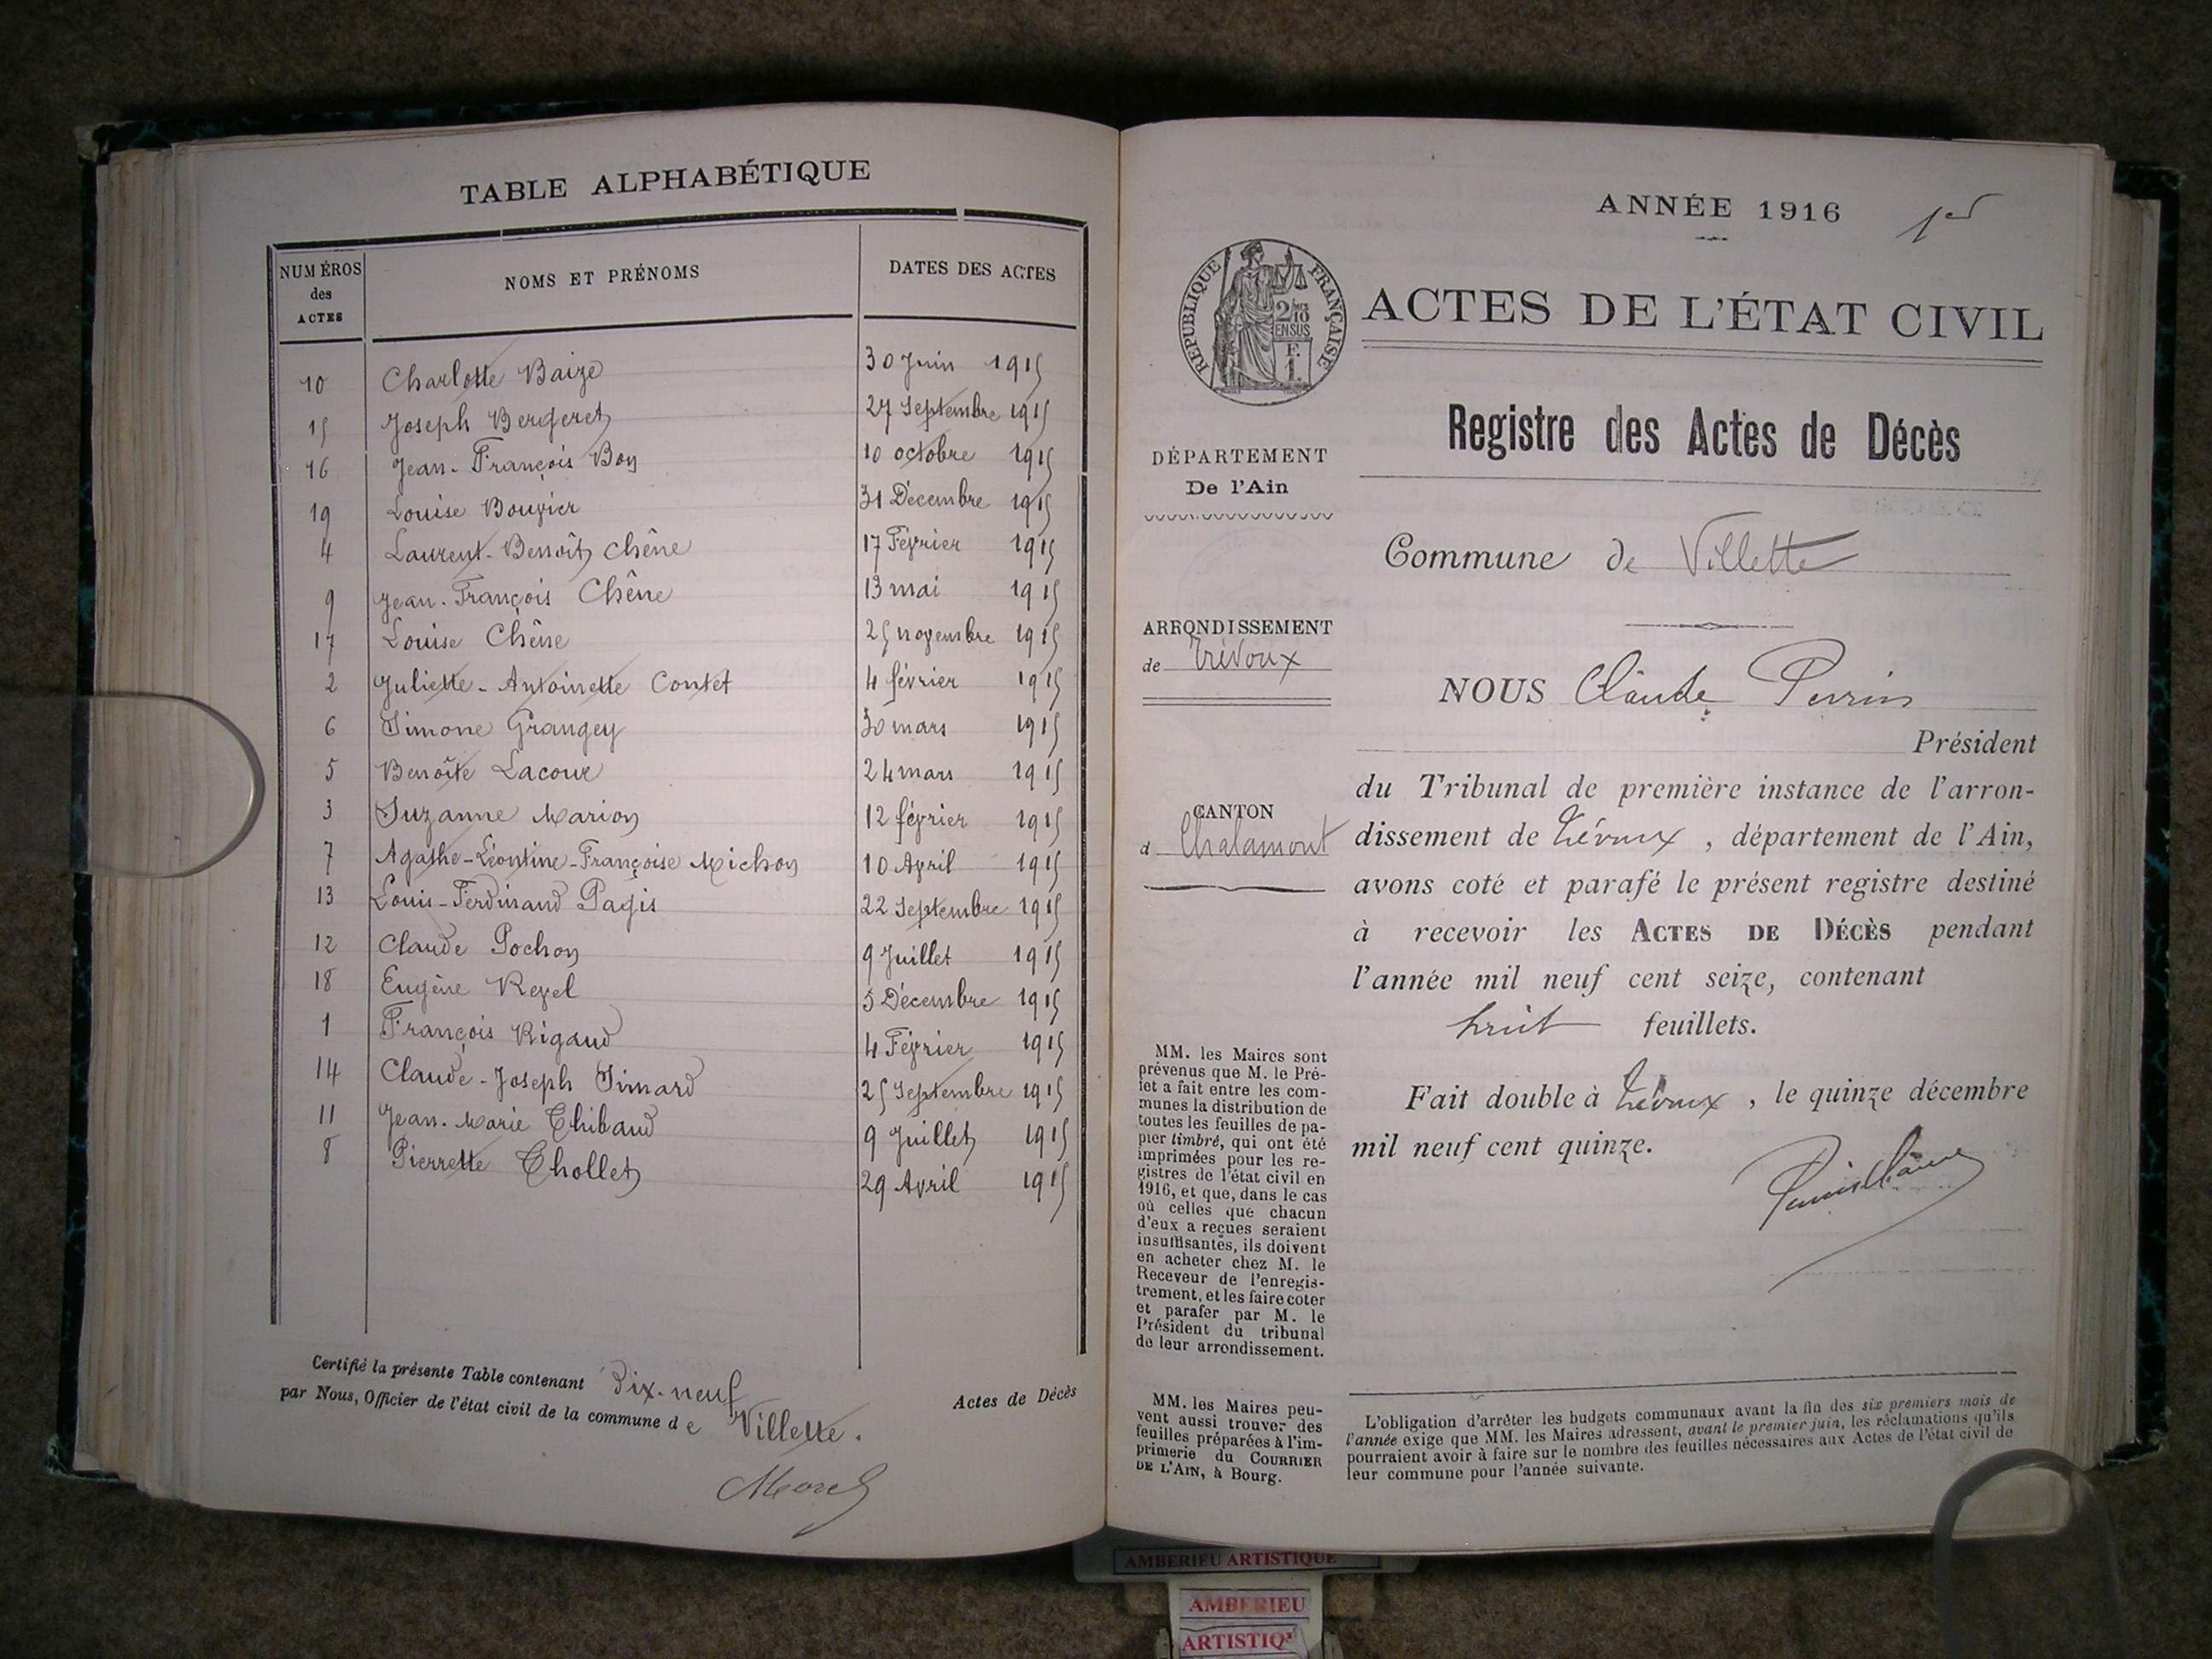 TABLE ALPHABÉTIQUE
NUMÉROS des ACTES | NOMS ET PRÉNOMS | DATES DES ACTES
10 Charlotte Baize 30 Juin 1915
15 Joseph Bergeret 27 Septembre 1915
16 Jean-François Boy 10 octobre 1915
19 Louise Bouvier 31 Décembre 1915
4 Laurent-Benoît Chêne 17 Février 1915
9 Jean-François Chêne 13 mai 1915
17 Louise Chêne 25 novembre 1915
2 Juliette-Antoinette Contet 4 février 1915
6 Simone Grangey 30 mars 1915
5 Benoîte Lacour 24 mars 1915
3 Suzanne Marion 12 février 1915
7 Agathe-Léontine-Françoise Michon 10 Avril 1915
13 Louis-Ferdinand Pagis 22 Septembre 1915
12 Claude Pochon 9 Juillet 1915
18 Eugène Revel 5 Décembre 1915
1 François Rigaud 4 Février 1915
14 Claude-Joseph Simard 25 Septembre 1915
11 Jean-Marie Thibaud 9 Juillet 1915
8 Pierrette Thollet 29 Avril 1915
Certifié la présente Table contenant Dix-neuf Actes de Décès
par Nous, Officier de l'état civil de la commune de Villette.
Morel
ANNÉE 1916
1er
RÉPUBLIQUE FRANÇAISE
2/10
EN SUS
F.
1.
ACTES DE L'ÉTAT CIVIL
Registre des Actes de Décès
DÉPARTEMENT
De l'Ain
Commune de Villette
ARRONDISSEMENT
de Trévoux
NOUS Claude Perrin
Président
du Tribunal de première instance de l'arron-
CANTON
d Chalamont
dissement de Trévoux, département de l'Ain,
avons coté et parafé le présent registre destiné
à recevoir les ACTES DE DÉCÈS pendant
l'année mil neuf cent seize, contenant
huit feuillets.
Fait double à Trévoux, le quinze décembre
mil neuf cent quinze.
MM. les Maires sont
prévenus que M. le Pré-
fet a fait entre les com-
munes la distribution de
toutes les feuilles de pa-
pier timbré, qui ont été
imprimées pour les re-
gistres de l'état civil en
1916, et que, dans le cas
où celles que chacun
d'eux a reçues seraient
insuffisantes, ils doivent
en acheter chez M. le
Receveur de l'enregis-
trement, et les faire coter
et parafer par M. le
Président du tribunal
de leur arrondissement.
MM. les Maires peu-
vent aussi trouver des
feuilles préparées à l'im-
primerie du COURRIER
DE L'AIN, à Bourg.
L'obligation d'arrêter les budgets communaux avant la fin des six premiers mois de
l'année exige que MM. les Maires adressent, avant le premier juin, les réclamations qu'ils
pourraient avoir à faire sur le nombre des feuilles nécessaires aux Actes de l'état civil de
leur commune pour l'année suivante.
AMBERIEU ARTISTIQUE
AMBERIEU
ARTISTIQ